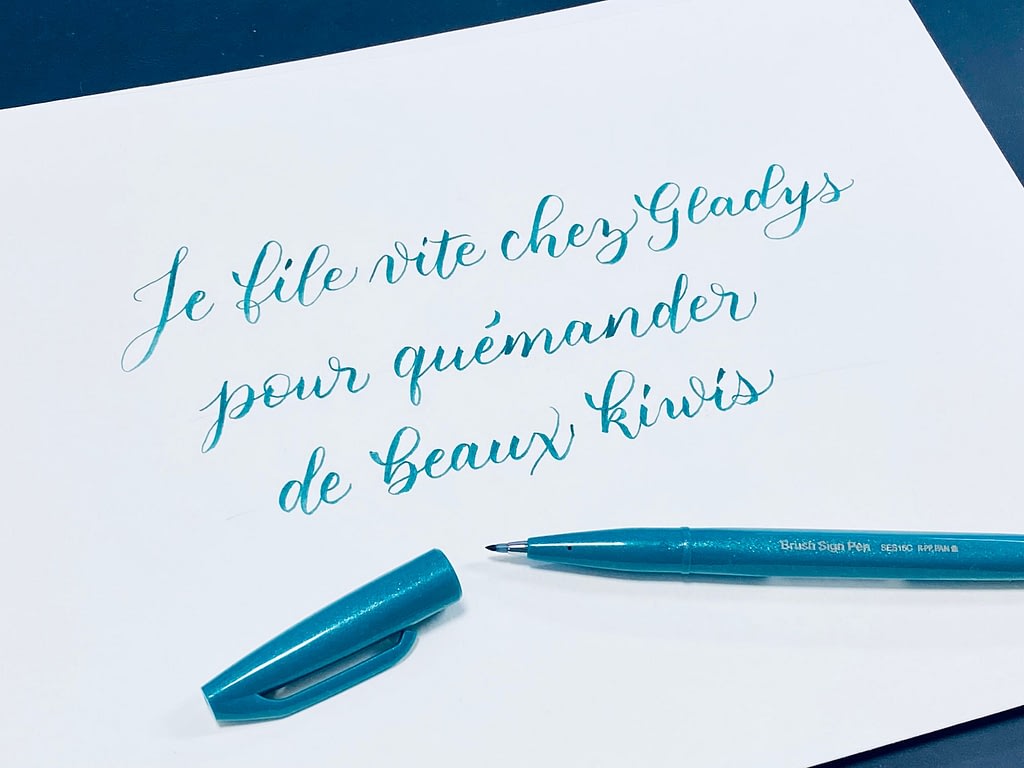 Je file vite chez Gladys
pour quémander
de beaux kiwis
Brush Sign Pen SES15C